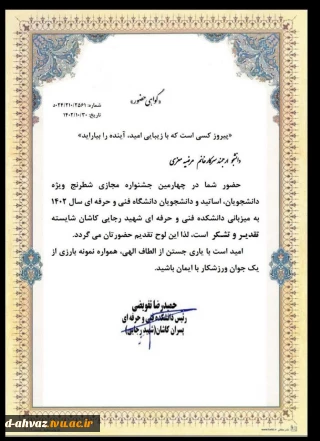 «گواهی حضور»
شماره: ۲۵۶۱/۲۱۰/۰۲۴-د
تاریخ: ۱۴۰۲/۱۰/۳۰
«پیروز کسی است که با زیبایی امید، آینده را بیاراید»
دانشجو ارجمند سرکار خانم مرضیه معزی
حضور شما در چهارمین جشنواره مجازی شطرنج ویژه
دانشجویان، اساتید و دانشجویان دانشگاه فنی و حرفه ای سال ۱۴۰۲
به میزبانی دانشکده فنی و حرفه ای شهید رجایی کاشان شایسته
تقدیر و تشکر است، لذا این لوح تقدیم حضورتان می گردد.
امید است با یاری جستن از الطاف الهی، همواره نمونه بارزی از
یک جوان ورزشکار با ایمان باشید.
حمیدرضا تفویضی
رئیس دانشکده فنی و حرفه ای
پسران کاشان(شهید رجایی)
d-ahvaz.tvu.ac.ir